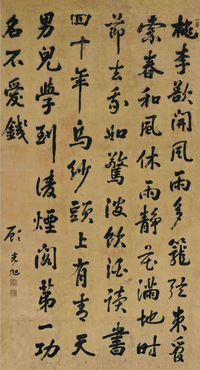 桃李欲開風雨多籠弦束
索春和風休雨靜花滿地時
節去我如驚波飲酒讀書
四十年烏紗頭上有青天
男兒學到凌煙閣第一功
名不愛錢
顧光旭